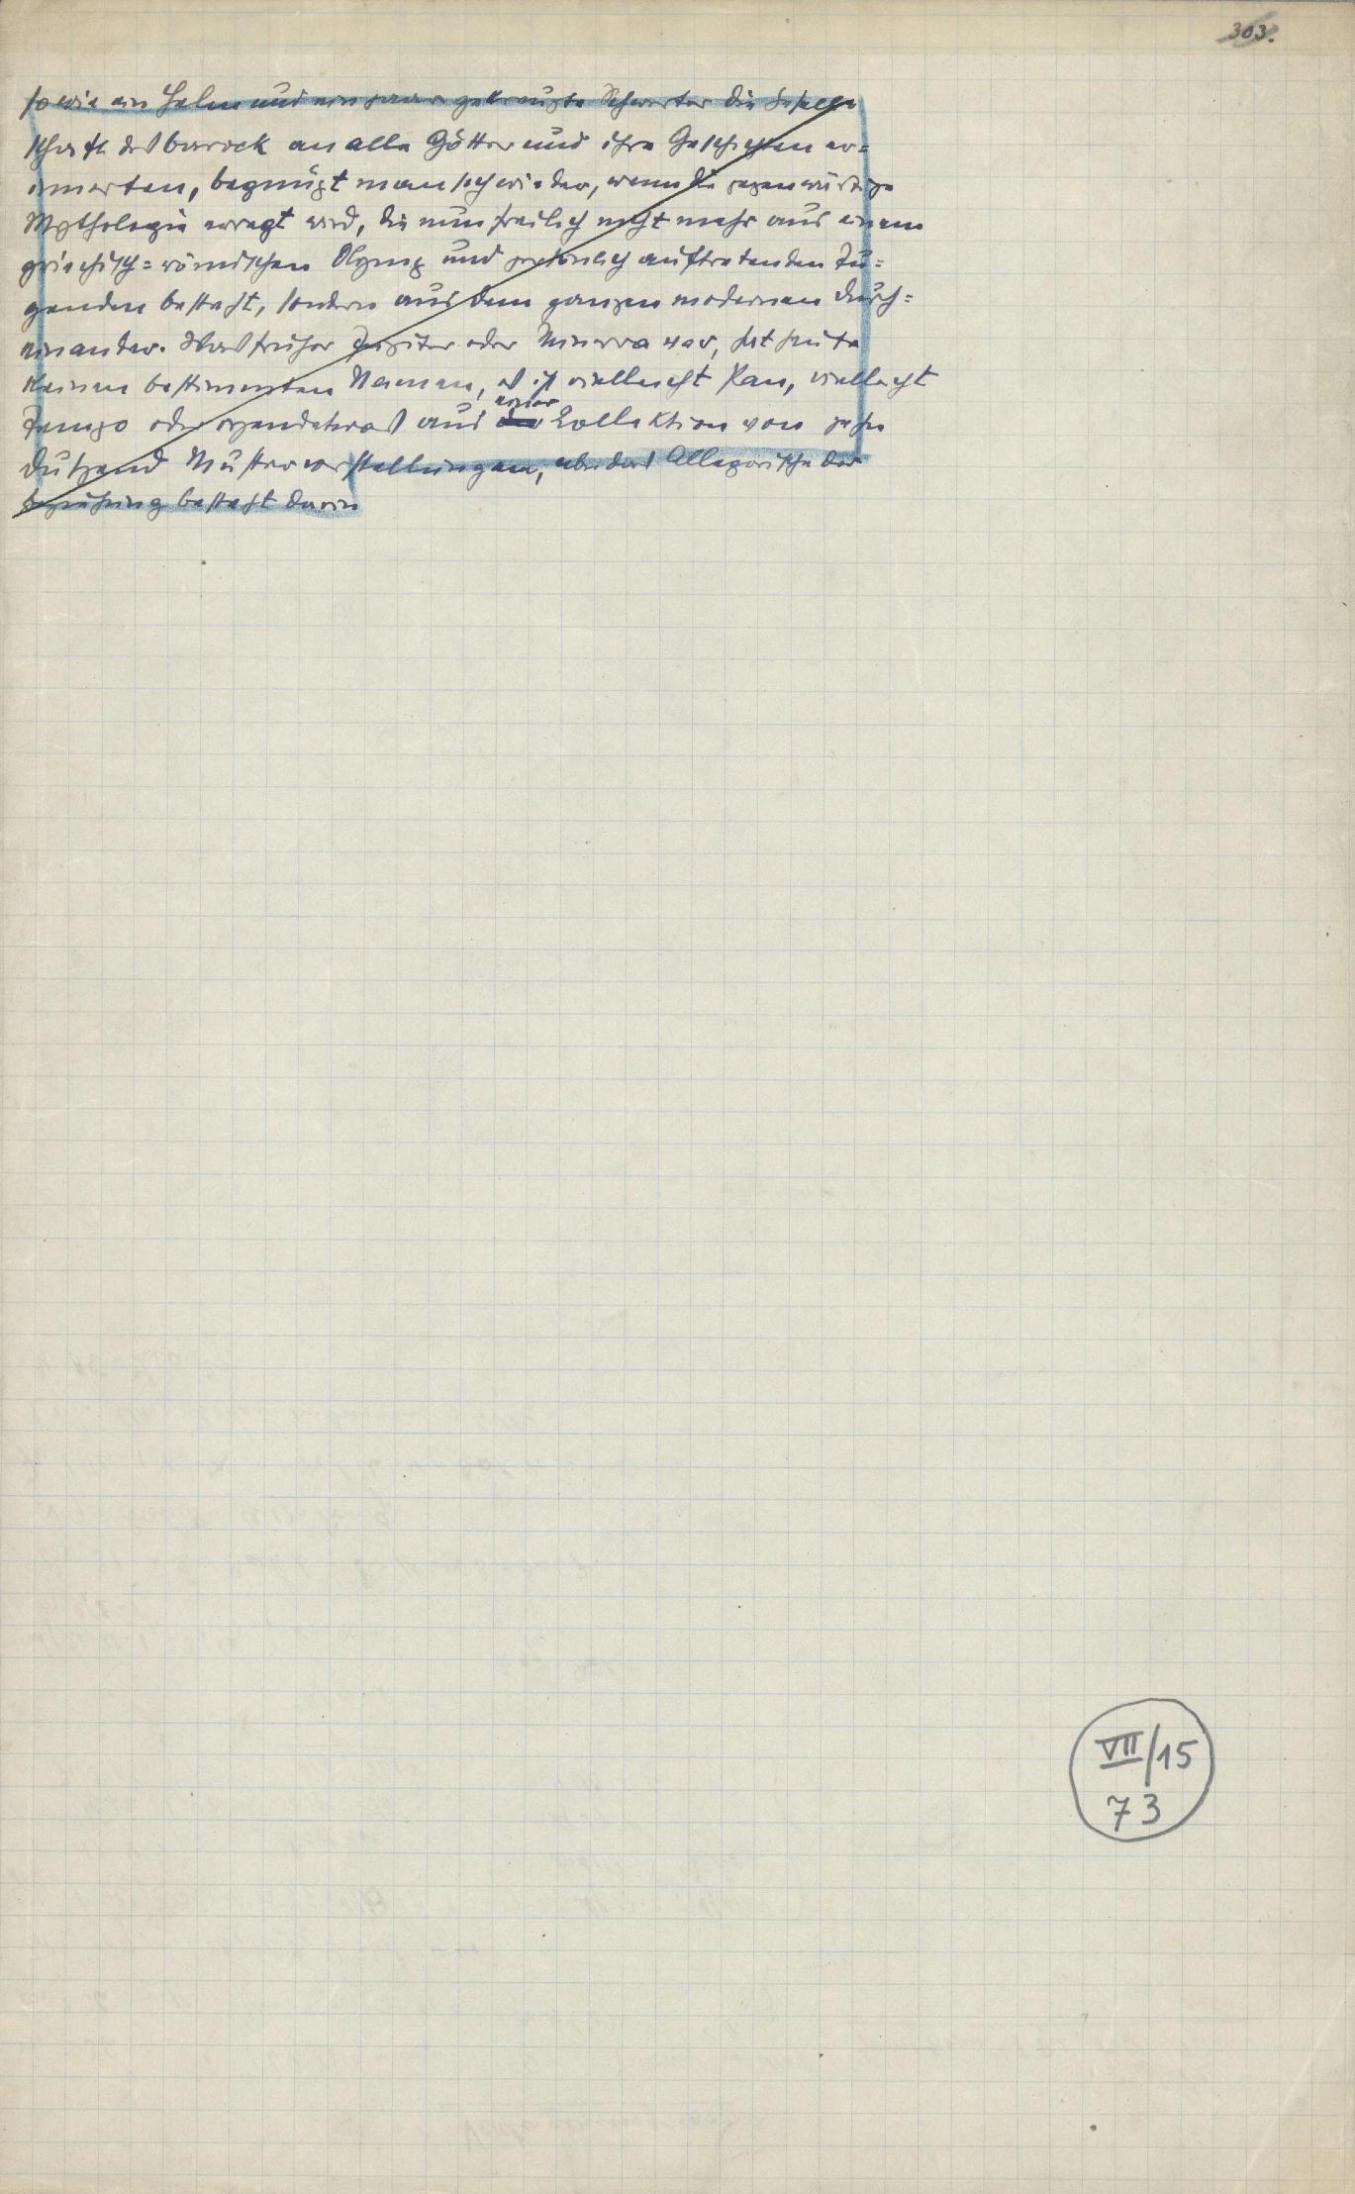 303.
sowie ein Helm und ein paar gekreuzte Schwerter die Gesell
schaft des Barock an alle Götter und ihre Geschichten er=
innerten, begnügt man sich wieder, wenn die gegenwärtige
Mythologie erregt wird, die nun freilich nicht mehr aus einem
griechisch=römischen Olymp und persönlich auftretenden Tu=
genden besteht, sondern aus dem ganzen modernen Durch=
einander. Was früher Jupiter oder Minerva war, hat heute
keinen bestimmten Namen, es ist vielleicht Rau, vielleicht
Tempo oder irgendetwas aus einer Kollektion von zehn
Dutzend Mustervorstellungen, aber das Allegorische der
Beziehung besteht darin
VII/15
73